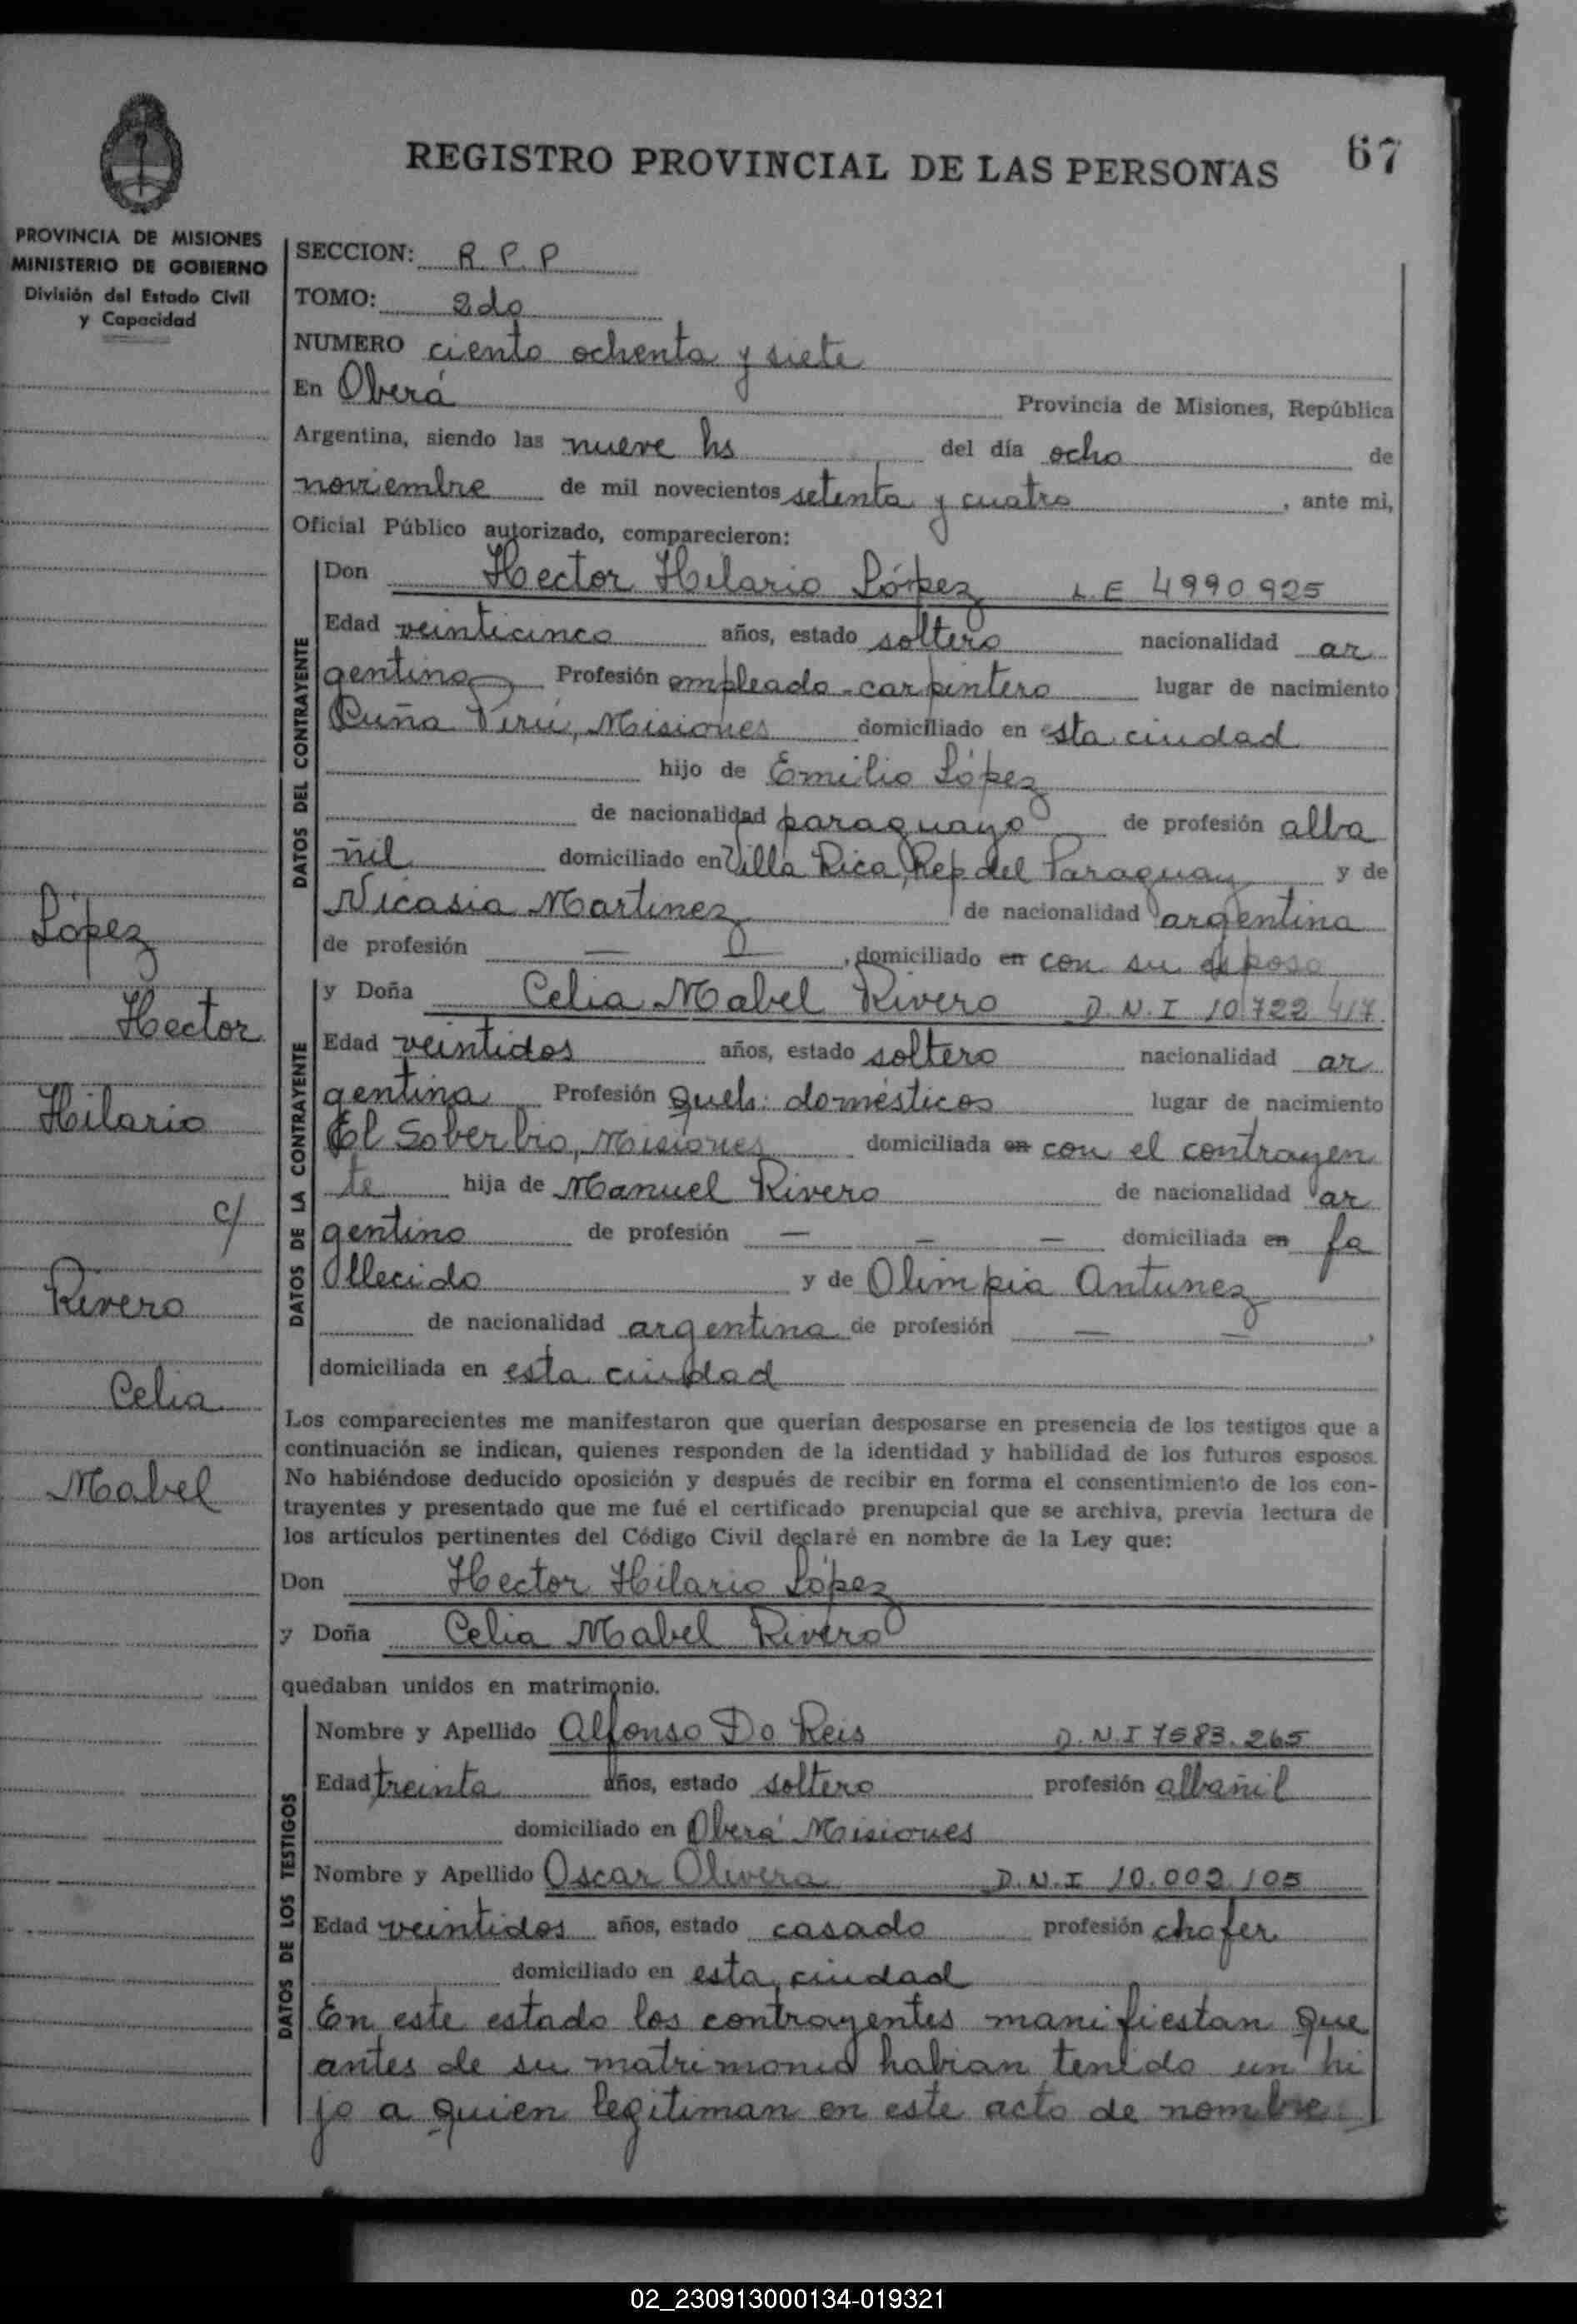 REGISTRO PROVINCIAL DE LAS PERSONAS
67
PROVINCIA DE MISIONES
MINISTERIO DE GOBIERNO
División del Estado Civil
y Capacidad
SECCION: R. P. P
TOMO: 2do
NUMERO ciento ochenta y siete
En Oberá Provincia de Misiones, República
Argentina, siendo las nueve hs del día ocho de
noviembre de mil novecientos setenta y cuatro, ante mi,
Oficial Público autorizado, comparecieron:
DATOS DEL CONTRAYENTE
Don Hector Hilario López L.E 4990925
Edad veinticinco años, estado soltero nacionalidad ar
gentino Profesión empleado-carpintero lugar de nacimiento
Cuña Pirú, Misiones domiciliado en esta ciudad
hijo de Emilio López
de nacionalidad paraguayo de profesión alba
ñil domiciliado en Villa Rica, Rep del Paraguay y de
Nicasia Martinez de nacionalidad argentina
de profesión — — , domiciliado en con su esposo
DATOS DE LA CONTRAYENTE
y Doña Celia Mabel Rivero D.N.I 10722417
Edad veintidos años, estado soltero nacionalidad ar
gentina Profesión Queh: domésticos lugar de nacimiento
El Soberbio, Misiones domiciliada en con el contrayen
te hija de Manuel Rivero de nacionalidad ar
gentino de profesión — — — domiciliada en fa
llecido y de Olimpia Antunez
de nacionalidad argentina de profesión — — ,
domiciliada en esta ciudad
López
Hector
Hilario
c/
Rivero
Celia
Mabel
Los comparecientes me manifestaron que querían desposarse en presencia de los testigos que a
continuación se indican, quienes responden de la identidad y habilidad de los futuros esposos.
No habiéndose deducido oposición y después de recibir en forma el consentimiento de los con-
trayentes y presentado que me fué el certificado prenupcial que se archiva, previa lectura de
los artículos pertinentes del Código Civil declaré en nombre de la Ley que:
Don Hector Hilario López
y Doña Celia Mabel Rivero
quedaban unidos en matrimonio.
DATOS DE LOS TESTIGOS
Nombre y Apellido Alfonso Do Reis D.N.I 7583.265
Edad treinta años, estado soltero profesión albañil
domiciliado en Oberá Misiones
Nombre y Apellido Oscar Olivera D.N.I 10.002.105
Edad veintidos años, estado casado profesión chofer
domiciliado en esta ciudad
En este estado los contrayentes manifiestan que
antes de su matrimonio habian tenido un hi
jo a quien legitiman en este acto de nombre
02_230913000134-019321